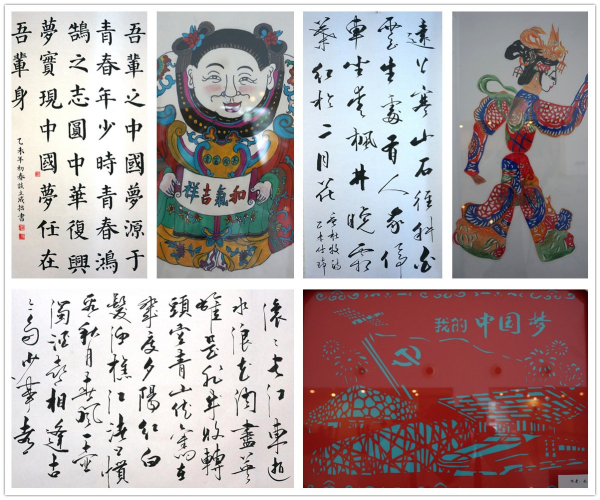 吾輩之中國夢源于
青春年少時青春鴻
鵠之志圓中華復興
夢實現中國夢仕在
吾輩身
乙未年初春
和氣吉祥
遠上寒山石徑斜白
雲生處有人家停
車坐愛楓林晚霜
葉紅於二月花
滾々長江東逝
水浪花淘盡英
雄是非成敗轉
頭空青山依舊在
幾度夕陽紅白
髮漁樵江渚上慣
看秋月春風一壺
濁酒喜相逢古
今多少事都
我的中国梦